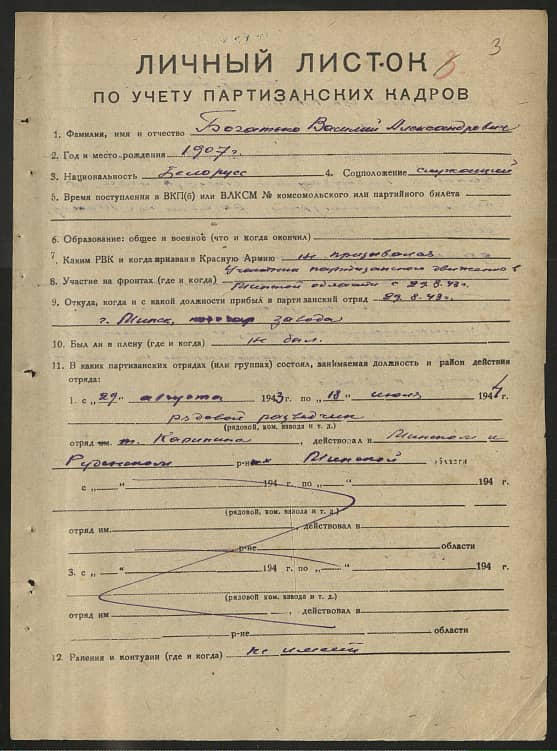 3
ЛИЧНЫЙ ЛИСТОК 8
ПО УЧЕТУ ПАРТИЗАНСКИХ КАДРОВ
1. Фамилия, имя и отчество Богатько Василий Александрович
2. Год и место рождения 1907 г.
3. Национальность Белорусс 4. Соцположение служащий
5. Время поступления в ВКП(б) или ВЛКСМ № комсомольского или партийного билета
6. Образование: общее и военное (что и когда окончил)
7. Каким РВК и когда призван в Красную Армию не призывался
Участник партизанского движения в
8. Участие на фронтах (где и когда) Минской области с 29.8.43 г.
9. Откуда, когда и с какой должности прибыл в партизанский отряд 29.8.43 г.
г. Минск, завода
10. Был ли в плену (где и когда) не был.
11. В каких партизанских отрядах (или группах) состоял, занимаемая должность и район действия
отряда:
1. с „29" августа 1943 г. по „18" июля 1944 г.
рядовой разведчик
(рядовой, ком. взвода и т. д.)
отряд им. т. Калинина, действовал в Минском и
Руденском р-нах Минской области
с „ " 194 г. по „ " 194 г.
(рядовой, ком. взвода и т. д.)
отряд им. , действовал в
р-не области
3. с „ " 194 г. по „ " 194 г.
(рядовой, ком. взвода и т. д.)
отряд им , действовал в
р-не области
12. Ранения и контузии (где и когда) не имеет